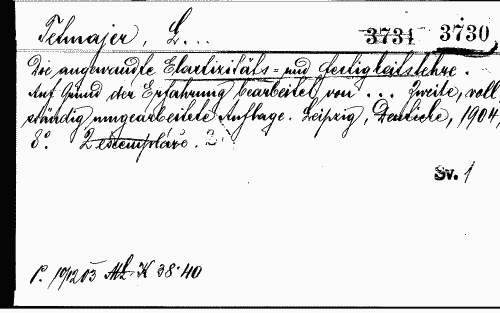 Tetmajer, L... 3731 3730
Die angewandte Elastizitäts- und Festigkeitslehre.
Auf Grund der Erfahrung bearbeitet von ... Zweite, voll
ständig umgearbeitete Auflage. Leipzig, Deuticke, 1904,
8°. 2 exemplare.
Sv. 1
K 38·40